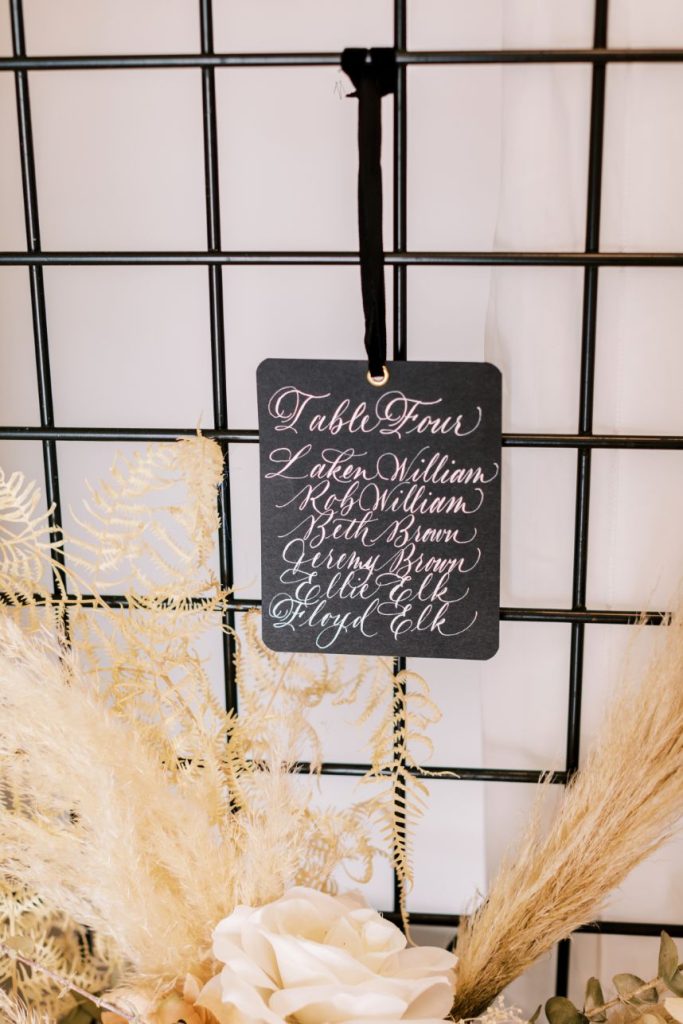 Table Four
Laken William
Rob William
Beth Brown
Jeremy Brown
Ellie Elk
Floyd Elk